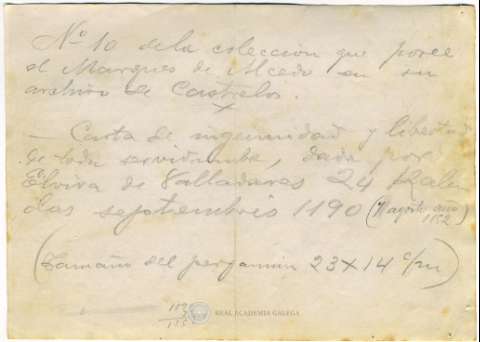 Nº 10 de la coleccion que posee
el Marques de Alcedo en su
archivo de Castrelos.
x
— Carta de ingenuidad y libertad
de toda servidumbre, dada por
Elvira de Valladares 24 Kalen
das septembris 1190 (agosto año
1152)
(Tamaño del pergamin 23 x 14 c/m)
REAL ACADEMIA GALEGA